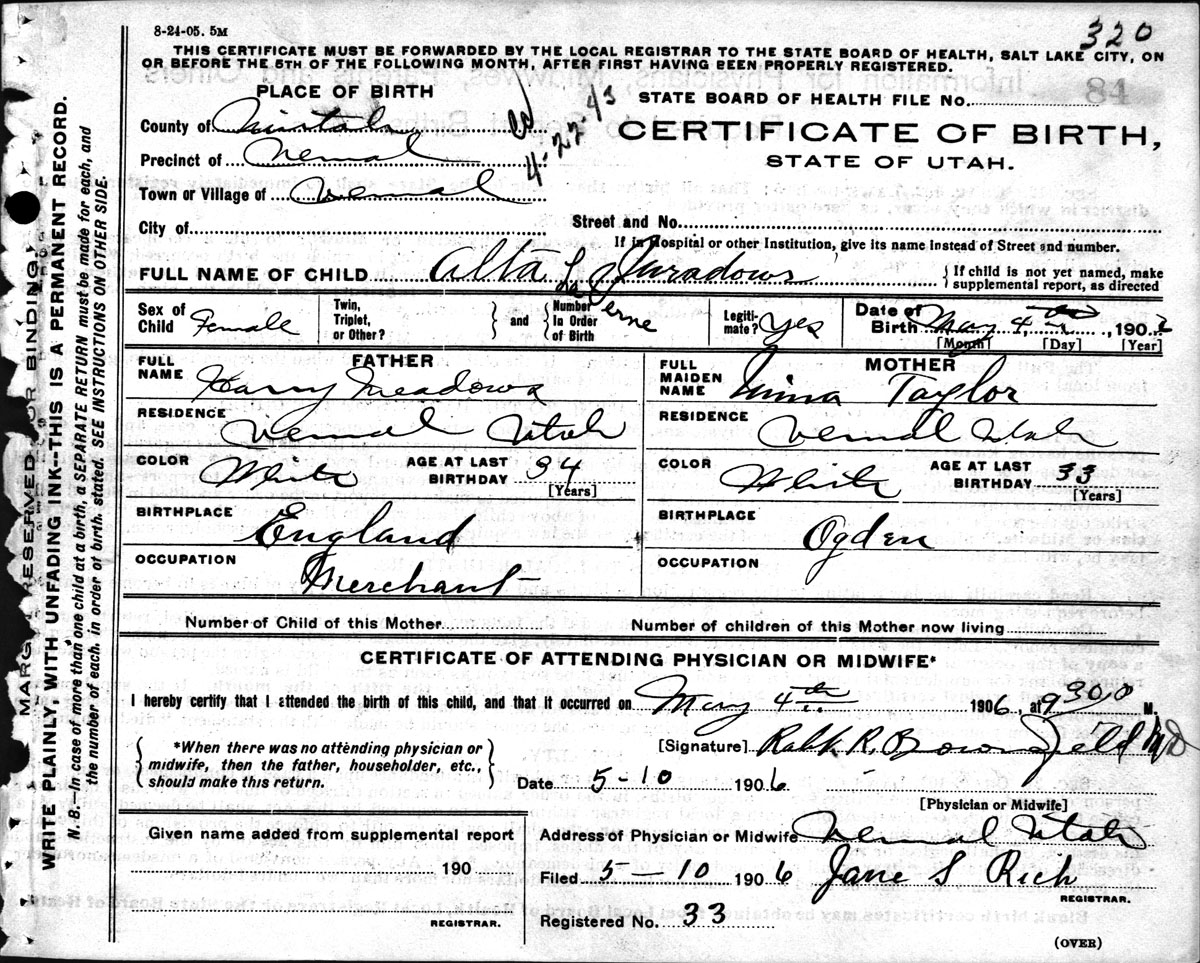 8-24-05. 5M
320
THIS CERTIFICATE MUST BE FORWARDED BY THE LOCAL REGISTRAR TO THE STATE BOARD OF HEALTH, SALT LAKE CITY, ON
OR BEFORE THE 5TH OF THE FOLLOWING MONTH, AFTER FIRST HAVING BEEN PROPERLY REGISTERED.
PLACE OF BIRTH
STATE BOARD OF HEALTH FILE No.
84
County of Uintah
4-27-43
CERTIFICATE OF BIRTH,
Precinct of Vernal
STATE OF UTAH.
Town or Village of Vernal
City of
Street and No.
If in Hospital or other Institution, give its name instead of Street and number.
FULL NAME OF CHILD Alta La Verne Meadows
{If child is not yet named, make
supplemental report, as directed
Sex of Child Female
Twin, Triplet, or Other?
} and {
Number In Order of Birth
Legiti-mate? Yes
Date of Birth May 4th, 190
[Month] [Day] [Year]
FATHER
MOTHER
FULL NAME Harry Meadows
FULL MAIDEN NAME Minna Taylor
RESIDENCE Vernal Utah
RESIDENCE Vernal Utah
COLOR White AGE AT LAST BIRTHDAY 34 [Years]
COLOR White AGE AT LAST BIRTHDAY 33 [Years]
BIRTHPLACE England
BIRTHPLACE Ogden
OCCUPATION Merchant
OCCUPATION
Number of Child of this Mother
Number of children of this Mother now living
CERTIFICATE OF ATTENDING PHYSICIAN OR MIDWIFE*
I hereby certify that I attended the birth of this child, and that it occurred on May 4th 1906, at 930 M.
{*When there was no attending physician or
midwife, then the father, householder, etc.,
should make this return.}
[Signature] Ralph R. Bownfield MD
Date 5-10 1906
[Physician or Midwife]
Given name added from supplemental report
190
REGISTRAR.
Address of Physician or Midwife Vernal Utah
Filed 5-10 1906 Jane S Rich
REGISTRAR.
Registered No. 33
(OVER)
MARGIN RESERVED FOR BINDING
WRITE PLAINLY, WITH UNFADING INK--THIS IS A PERMANENT RECORD.
N. B.--In case of more than one child at a birth, a SEPARATE RETURN must be made for each, and
the number of each, in order of birth, stated. SEE INSTRUCTIONS ON OTHER SIDE.